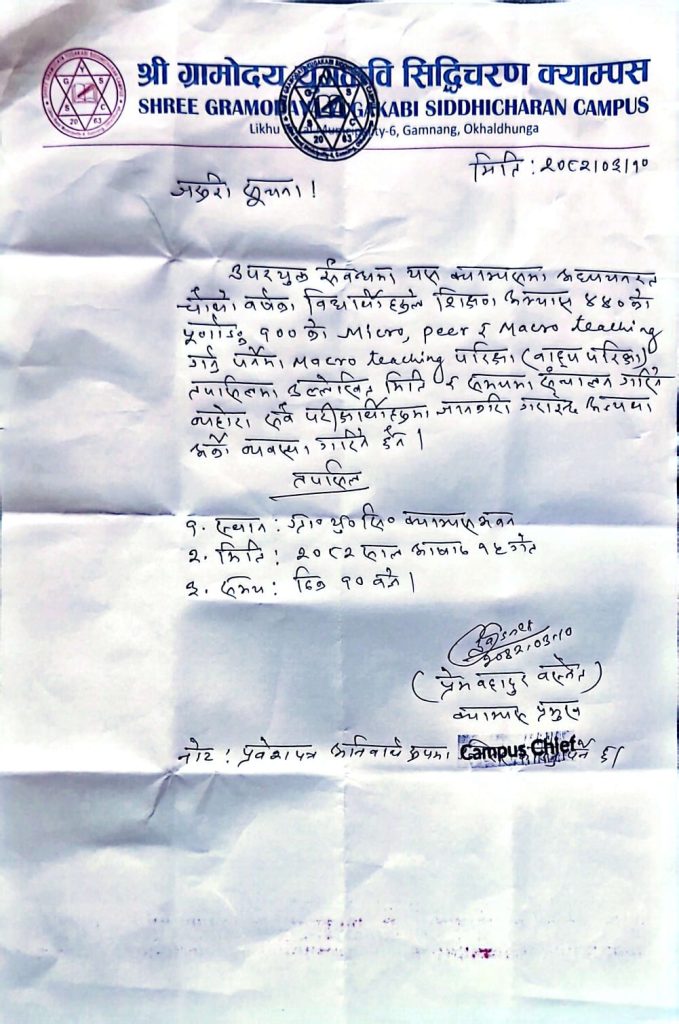 श्री ग्रामोदय युगकवि सिद्धिचरण क्याम्पस
SHREE GRAMODAYA YUGAKABI SIDDHICHARAN CAMPUS
Likhu Rural Municipality-6, Gamnang, Okhaldhunga
मिति : २०८२।०३।१०
जरुरी सूचना !
उपरयुक्त सम्बन्धमा यस क्याम्पसमा अध्ययनरत
चौथो वर्षका विद्यार्थीहरुले शिक्षण अभ्यास ४४० को
पूर्णाङ्क १०० को Micro, peer र Macro teaching
गर्नु पर्नेमा Macro teaching परिक्षा (वाह्य परिक्षा)
तपसिलमा उल्लेखित मिति र समयमा संचालन गरिने
व्यहोरा सबै परीक्षार्थीहरुमा जानकारी गराइन्छ अन्यथा
अर्को व्यवस्था गरिने छैन ।
तपसिल
१. स्थान : ग्रा० यु० सि० क्याम्पस भवन
२. मिति : २०८२ साल आषाढ १८ गते
३. समय : दिन १० बजे ।
2082.03.10
(प्रेम बहादुर बस्नेत)
क्याम्पस प्रमुख
Campus Chief
नोट : प्रवेशपत्र अनिवार्य रुपमा पर्ने छ ।